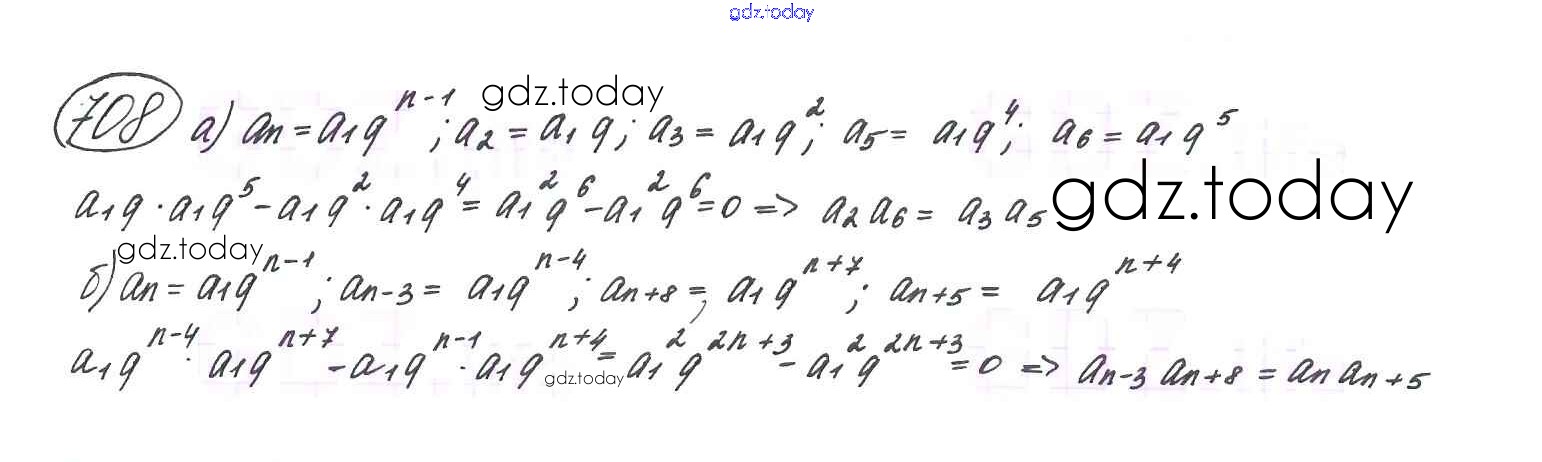 gdz.today
708 а) aₙ = a₁qⁿ⁻¹ gdz.today ; a₂ = a₁q; a₃ = a₁q²; a₅ = a₁q⁴; a₆ = a₁q⁵
a₁q · a₁q⁵ - a₁q² · a₁q⁴ = a₁²q⁶ - a₁²q⁶ = 0 => a₂a₆ = a₃a₅ gdz.today
gdz.today
б) aₙ = a₁qⁿ⁻¹; aₙ₋₃ = a₁qⁿ⁻⁴; aₙ₊₈ = a₁qⁿ⁺⁷; aₙ₊₅ = a₁qⁿ⁺⁴
a₁qⁿ⁻⁴ · a₁qⁿ⁺⁷ - a₁qⁿ⁻¹ · a₁qⁿ⁺⁴ = gdz.today a₁²q²ⁿ⁺³ - a₁²q²ⁿ⁺³ = 0 => aₙ₋₃aₙ₊₈ = aₙaₙ₊₅